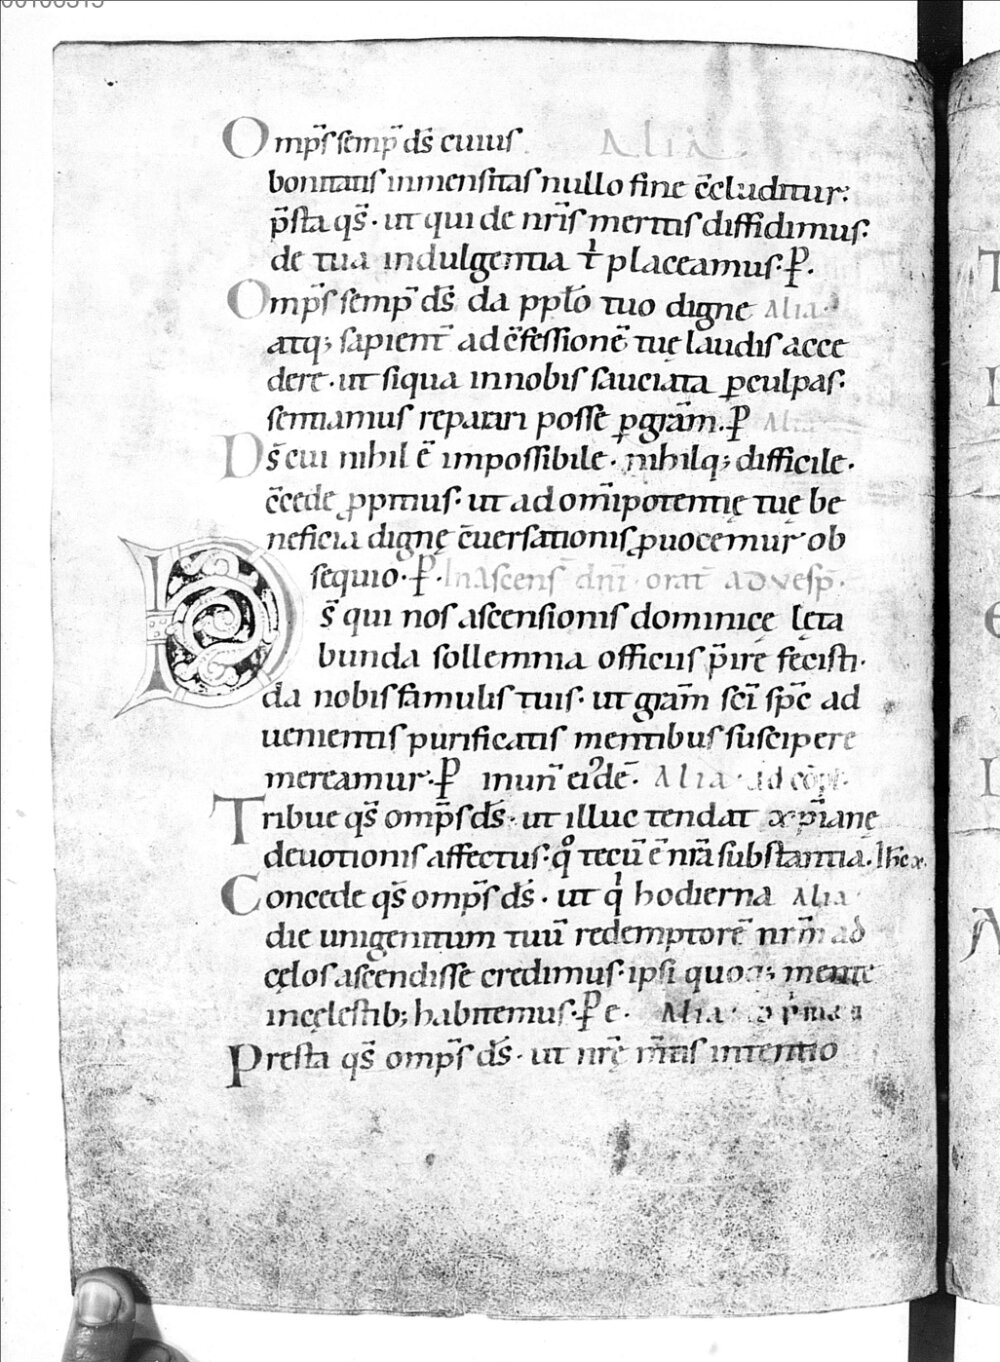 Omp̄s semp̄ ds̄ cuius Alia
bonitatis inmensitas nullo fine c̄cluditur:
p̄sta qs̄· ut qui de nr̄is meritis diffidimus:
de tua indulgentia t̄ placeamus· P̄·
Omp̄s semp̄ ds̄ da pplō tuo digne Alia
atq; sapient̄ ad c̄fessionē tuę laudis acce
dere· ut siqua innobis sauciata ꝑculpas·
sentiamus reparari posse ꝑgrām. P̄ Alia
Ds̄ cui nihil ē impossibile· nihilq; difficile·
c̄cede ꝓpitius· ut ad om̄ipotentię tuę be
neficia dignę c̄uersationis ꝓuocemur ob
sequio· P̄· In Ascens̄ dn̄i orat̄ ad vesp̄·
Ds̄ qui nos ascensionis dominicę lęta
bunda sollemnia officiis p̄ire fecisti·
da nobis famulis tuis· ut grām sc̄i sp̄c ad
uenientis purificatis mentibus suscipere
mereamur· P̄ mun̄ eiꝰdē· Alia· ad
Tribue qs̄ omp̄s ds̄· ut illuc tendat xp̄ianę
deuotionis affectus· qͦ tecū ē nr̄a substantia.
Concede qs̄ omp̄s ds̄· ut qͥ hodierna Alia
die unigenitum tuū redemptorē nrm̄ ad
cęlos ascendisse credimus· ipsi quoq; mente
incęlestib; habitemus· P̄ e· Alia
Presta qs̄ omp̄s ds̄· ut nrē m̄tis intentio